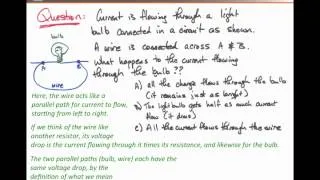 Question:
Current is flowing through a light
bulb connected in a circuit as shown.
A wire is connected across A & B.
What happens to the current flowing
through the bulb??
A) all the charge flows through the bulb
(it remains just as bright)
B) The light bulb gets half as much current
flow (it dims)
C) All the current flows through the wire
bulb
A
B
WIRE
Here, the wire acts like a
parallel path for current to flow,
starting from left to right.
If we think of the wire like
another resistor, its voltage
drop is the current flowing through it times its resistance, and likewise for the bulb.
The two parallel paths (bulb, wire) each have the
same voltage drop, by the
definition of what we mean